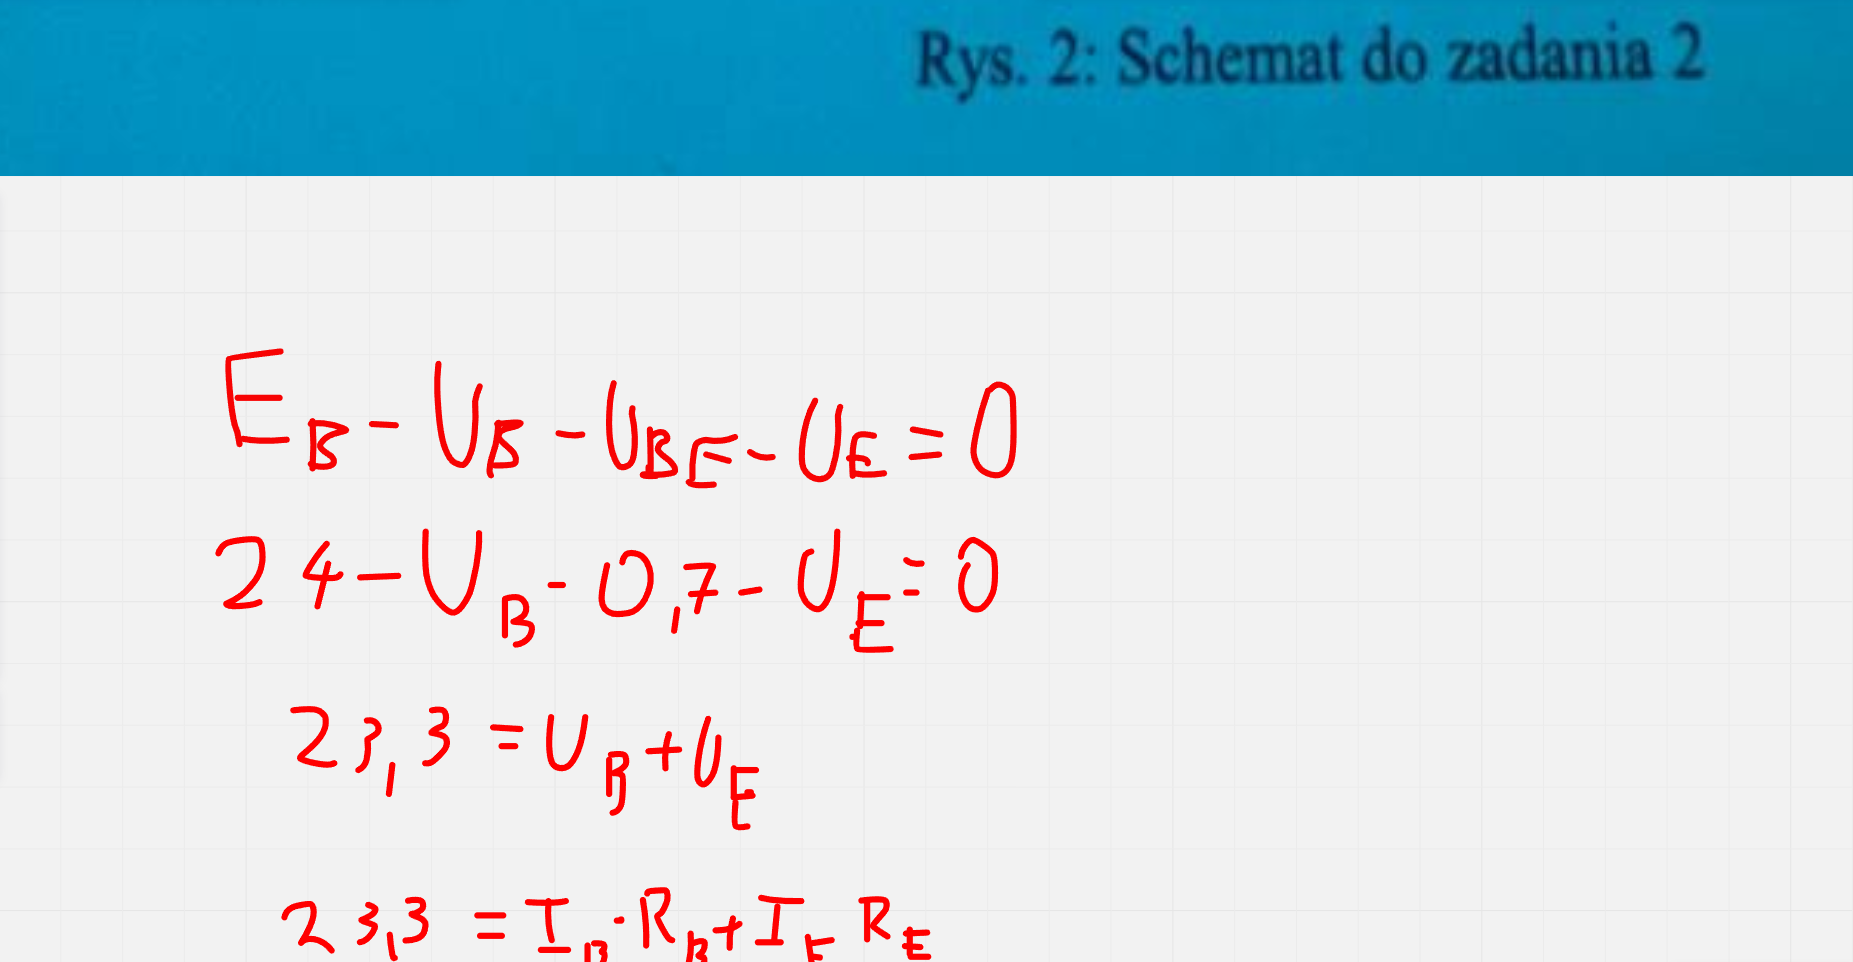 Rys. 2: Schemat do zadania 2
E_B - U_B - U_BE - U_E = 0
24 - U_B - 0,7 - U_E = 0
23,3 = U_B + U_E
23,3 = I_B · R_B + I_E R_E